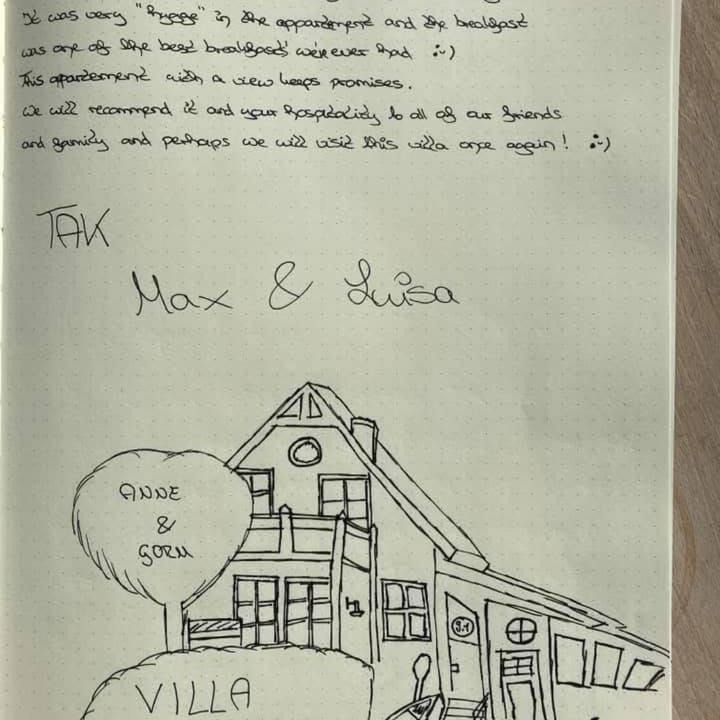 It was very "hygge" in the appartement and the breakfast
was one of the best breakfasts we're ever had :-)
This appartement with a view keeps promises.
We will recommend it and your hospitality to all of our friends
and family and perhaps we will visit this villa once again! :-)
TAK
Max & Luisa
ANNE
&
GORM
VILLA